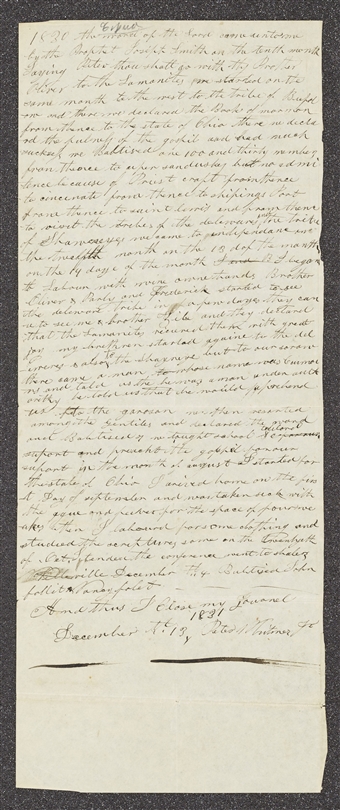 1830 the word of the Lord came unto me
by the Prophet Joseph Smith on the tenth month
Saying Peter thou shalt go with thy Brother
Oliver to the Lamanites we started on the
same month to the west to the tribe of
we and there we declared the Book of mormon
from thence to the state of Ohio there we decla
rd the fulness of the gospil and had much
suckess we Baptised one 100 and thirty members
from thence to uper sandusky but no ed mi
tence because of Priest craft from thence
to cincinate from thence to shipings Port
from thence to saint lewis and from thence
to the of the delewares the tribe
of Shawneses we came to independance on
the twelfth month on the 13 d of the month
on the 14 day of the month I began
to Labour with mine own hands Brother
Oliver & Parly and Frederick started to see
the deleware tribe in a few days they came
to see me & brother and they declared
that the Lamanites received them with great
joy my brethren started againe to the del
lewares & also to the Shawneze but to our sorrow
there came a man whose name was Cumar
ms and told us that he was a man under auth
ority he told us that he would aprehend
us to the garason we then resorted
amongst the Gentiles and declared the word
and Baptised 7 we taught school
suport and preacht the gospil for our
suport in the month of august I started for
the state of Ohio I arived home on the firs
t Day of september and was taken sick with
the ague and fever for the space of four we
eks then I laboured for some clothing and
studied the scriptures some on the twentyfifth
of Oct attended the conference went to shalers
ville December the 4 Baptised John
follit & Nancy follet
And thus I Close my Jouranel
December the 13, 1831 Peter Whitmer Jr